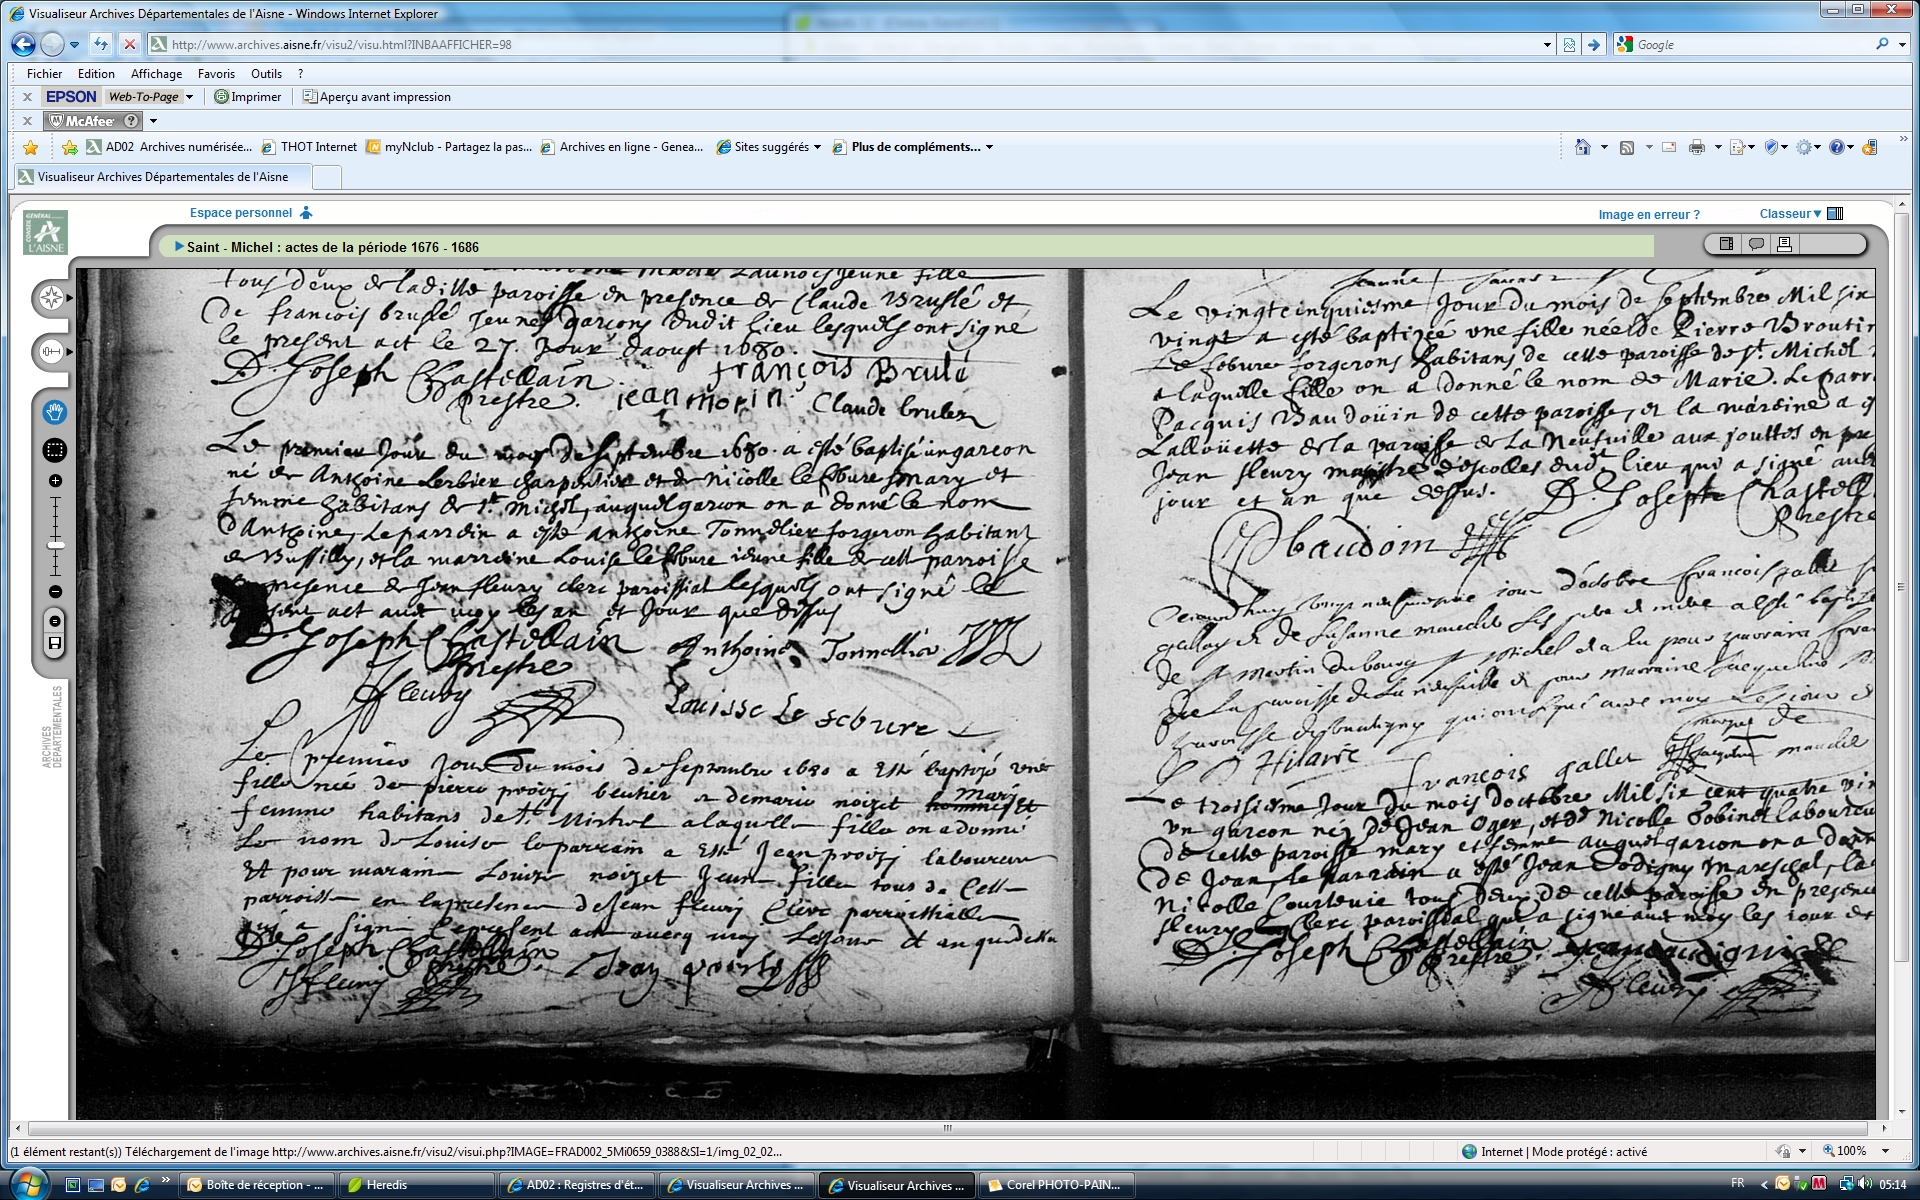 Visualiseur Archives Départementales de l'Aisne - Windows Internet Explorer
http://www.archives.aisne.fr/visu2/visu.html?INBAAFFICHER=98
Google
Fichier Edition Affichage Favoris Outils ?
x EPSON Web-To-Page Imprimer Aperçu avant impression
x McAfee ?
AD02 Archives numérisée... THOT Internet myNclub - Partagez la pas... Archives en ligne - Genea... Sites suggérés Plus de compléments...
Visualiseur Archives Départementales de l'Aisne
CONSEIL GÉNÉRAL L'AISNE
Espace personnel Image en erreur ? Classeur
Saint - Michel : actes de la période 1676 - 1686
ARCHIVES DÉPARTEMENTALES
Launois Jeune fille
tous deux de ladille paroisse en presence de Claude Bruslé et
De françois bruslé Jeunes garçons dudit lieu lesquels ont signé
le present act le 27 Jour daoust 1680.
D. Joseph Chastellain françois Brulé
Prestre. jean morin Claude brulez
Le premier Jour du mois de Septembre 1680. a esté baptisé un garcon
né de Anthoine Lerbier charpentier et de Nicolle lefebure mary et
femme habitans de St. Michel, auquel garcon on a donné le nom
D'Anthoine, Le parrein a esté Anthoine Tonnelier forgeron habitant
de Bussilly, et la marreine Louise lefebure ieune fille de cett parroisse
presence de Jean fleury clerc paroissial lesquels ont signé le
act avec moy les an et Jour que dessus
D. Joseph Chastellain Anthoine Tonnellier
Prestre
fleury Louisse Le febvre
Le premier Jour Du mois de Septembre 1680 a esté baptizé une
fille née de pierre beuttier et de marie noizet mary et
femme habitans de St. Michel a laquelle fille on a donné
Le nom de Louise le parrain a esté Jean laboureur
Et pour maraine Louize noizet Jeune fille tous de Cette
parroisse en la presence de Jean fleury Clerc parroissialle
qui a signé le present act avecq moy Les Jour et an que dessu
D. Joseph Chastellain
Prestre.
fleury Jean
Le vingtcinquiesme Jour du mois de Septembre Mil six
vingt a esté baptizée une fille née de Pierre Broutin
Le febure forgerons habitans de cette paroisse de St. Michel
a laquelle fille on a donné le nom de Marie. Le parr
Pacquis Baudoüin de cette paroisse, et la mareine a
Lalloüette de la paroisse de La Neufuille aux jouttes en pre
Jean fleury maistre d'escolles dudt lieu qui a signé
jour et an que dessus. D. Joseph Chastell
Prestre
baudoin
iour d'octobre francois gallet
de Susanne
de St Martin du bourg St Michel
de la paroisse de La neufuille et pour marraine Jacqueline
paroisse de qui ont signé avec moy Le jour
Hilaire marque de
francois gallet Jacqueline
Le troisiesme Jour du mois doctobre Mil six cent quatre vin
un garcon né de Jean Oger, et de Nicolle Gobinet laboureu
de cette paroisse mary et femme auquel garcon on a donn
De Jean, le parrain a esté Jean Dodigny Mareschal, la
Nicolle Courtevie tous deux de cette paroisse en presence
fleury Clerc paroissial qui a signé avec moy les iour
D. Joseph Chastellain
Prestre.
fleury
(1 élément restant(s)) Téléchargement de l'image http://www.archives.aisne.fr/visu2/visui.php?IMAGE=FRAD002_5Mi0659_0388&SI=1/img_02_02...
Internet | Mode protégé : activé 100%
Boîte de réception - ... Heredis AD02 : Registres d'ét... Visualiseur Archives ... Visualiseur Archives ... Corel PHOTO-PAIN... FR 05:14